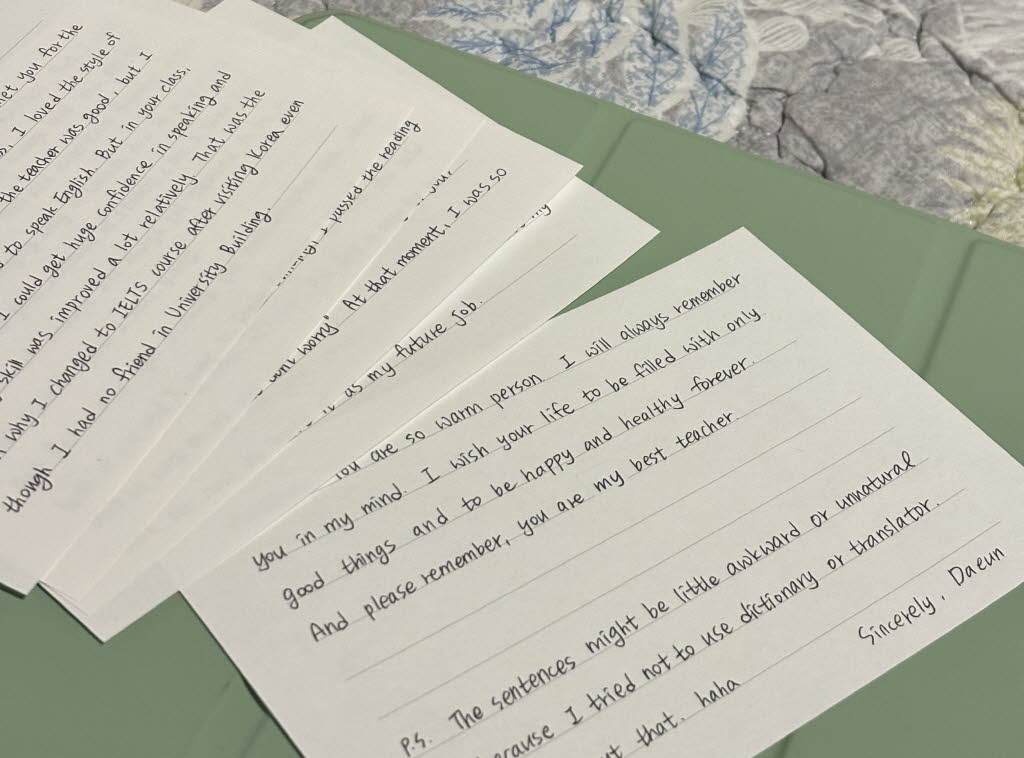 met you for the
, I loved the style of
the teacher was good, but I
to speak English. But in your class,
I could get huge confidence in speaking and
skill was improved a lot relatively. That was the
why I changed to IELTS course after visiting Korea even
though I had no friend in University Building.
I passed the reading
worry" At that moment, I was so
as my future job.
you are so warm person. I will always remember
you in my mind. I wish your life to be filled with only
good things and to be happy and healthy forever.
And please remember, you are my best teacher.
P.S. The sentences might be little awkward or unnatural
because I tried not to use dictionary or translator.
that. haha
Sincerely, Daeun